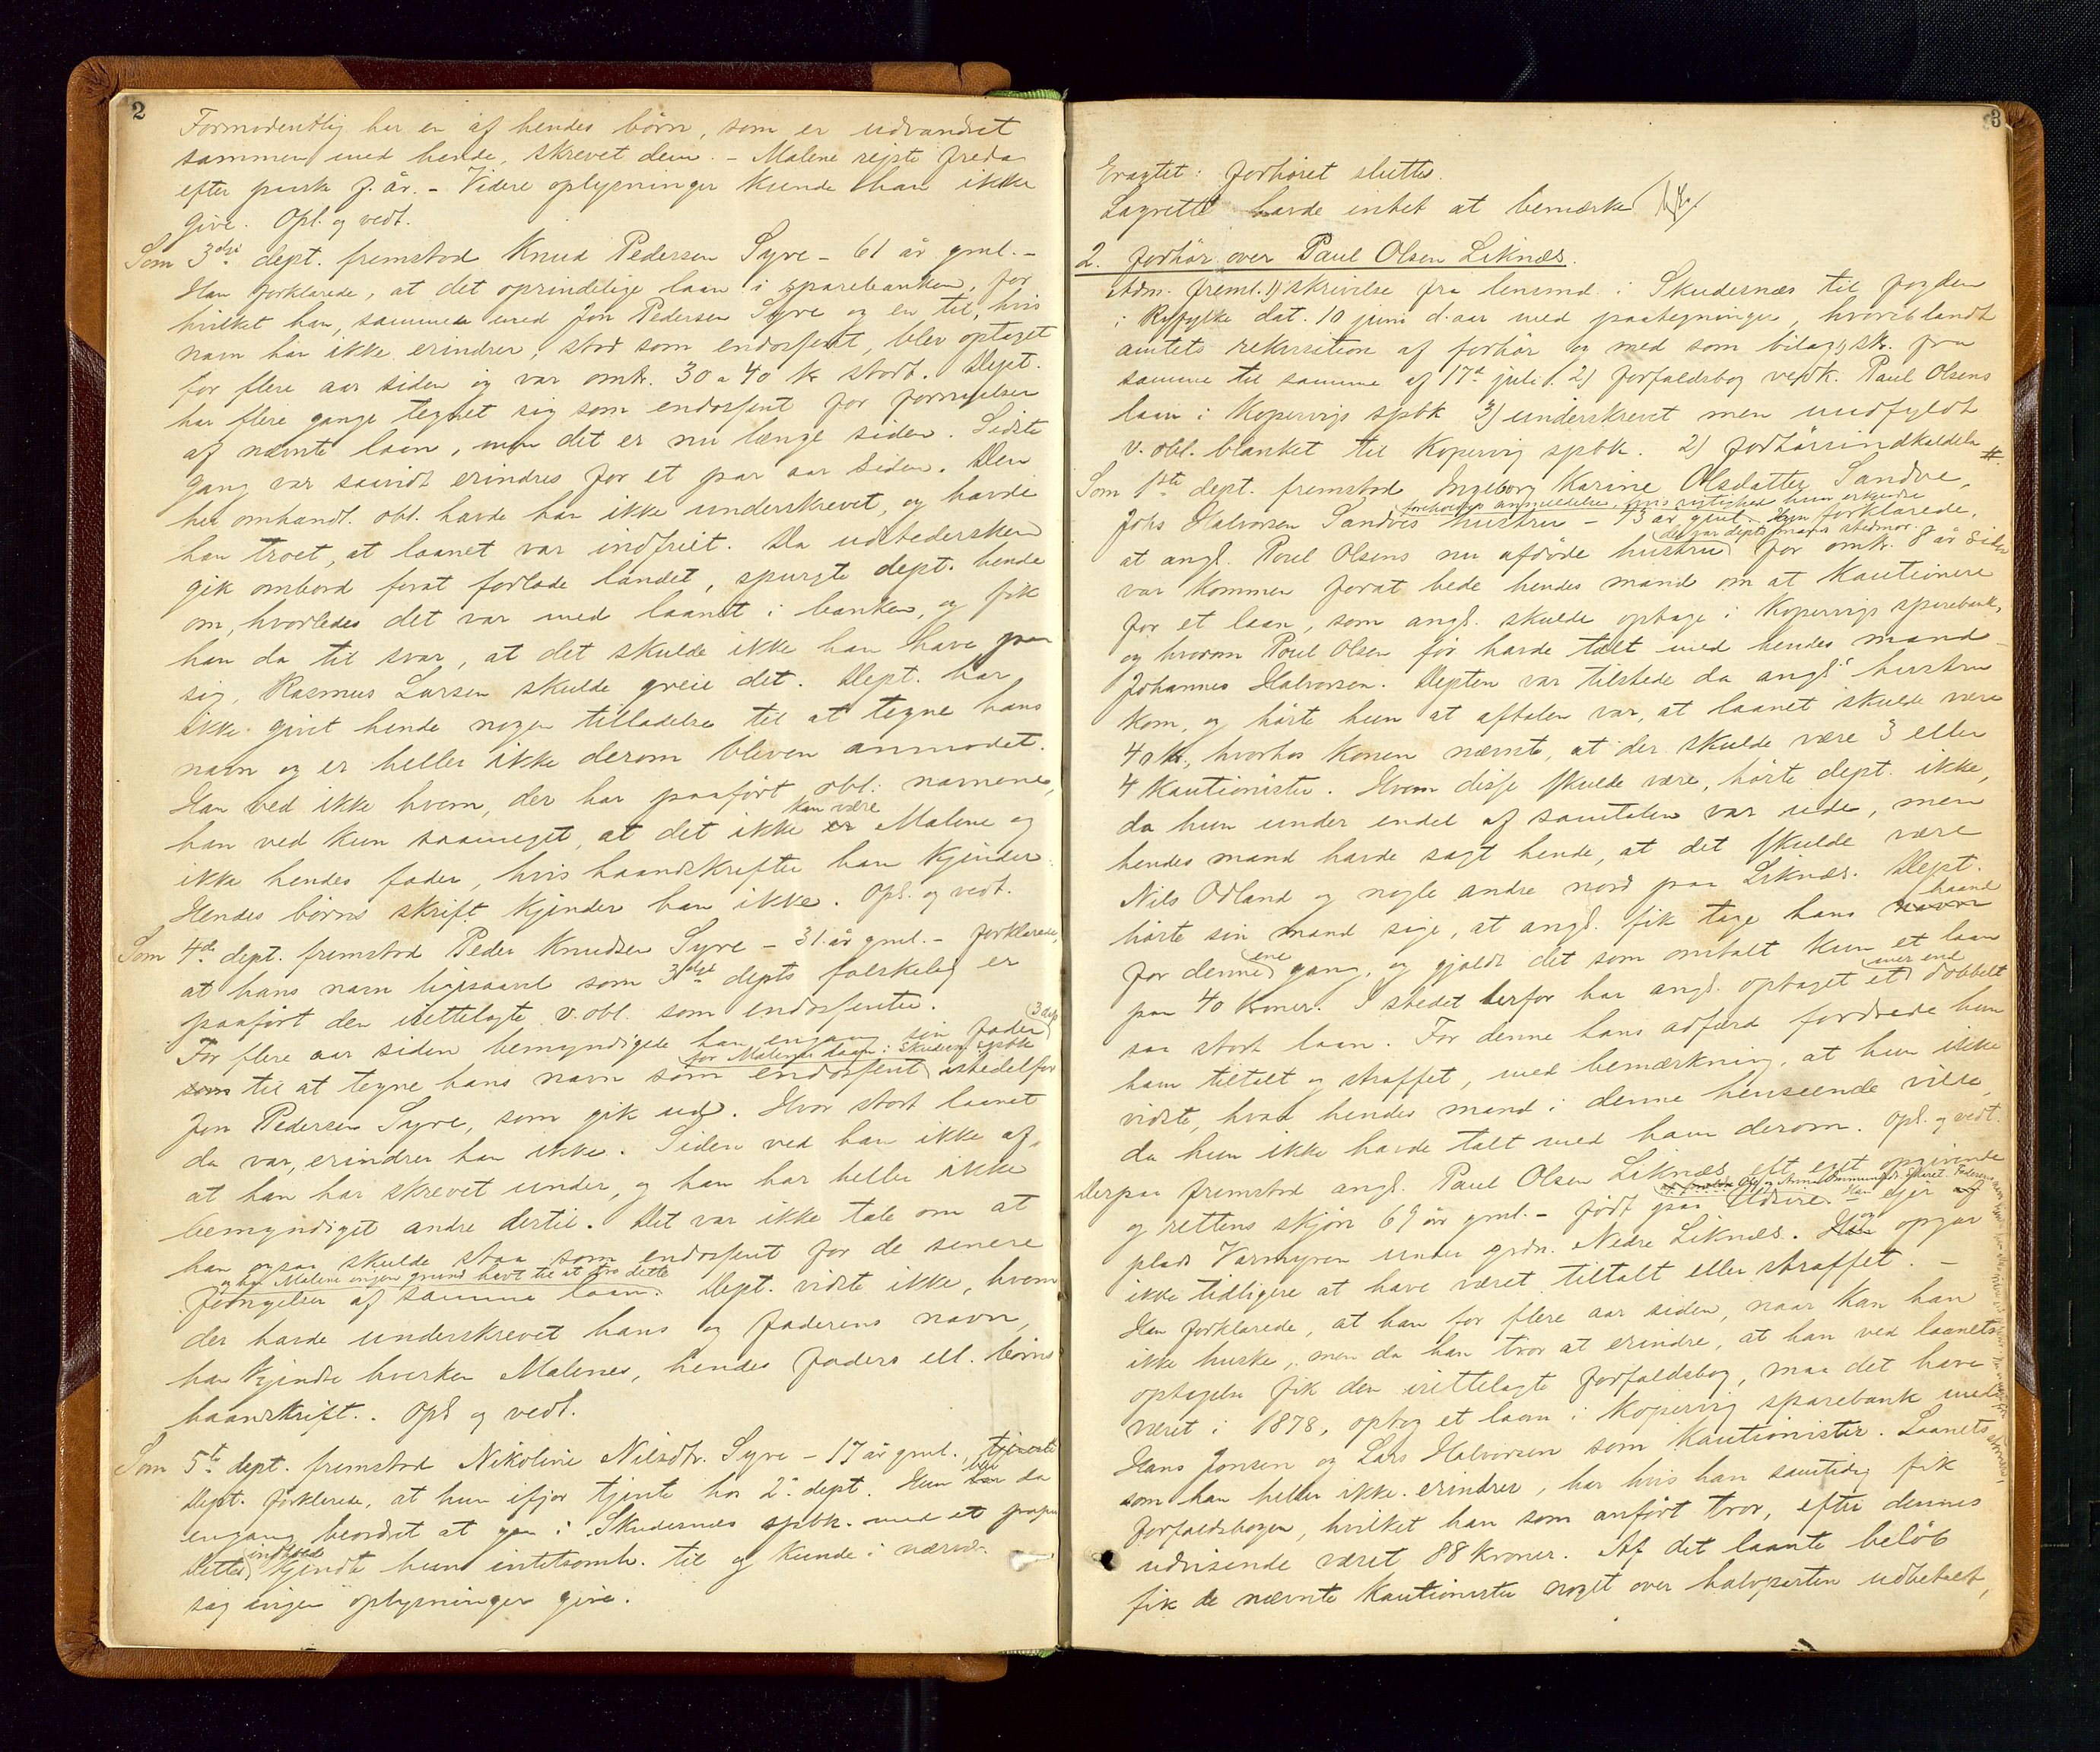 2
Formodentlig har en af hendes börn, som er udvandret
sammen med hende, skrevet dem. - Malene rejste fredag
efter paask f. år. - Videre oplysninger kunde han ikke
give. Opl. og vedt.
Som 3die dept. fremstod Knud Pedersen Syre - 61 år gml. -
Han forklarede, at det oprindelige laan i sparebanken, for
hvilket han, sammen med Jon Pedersen Syre og en til, hvis
navn han ikke erindrer, stod som endossent, blev optaget
for flere aar siden og var omtr. 30 a 40 kr stort. Dept.
har flere gange tegnet sig som endossent for fornyelsen
af nævnte laan, men det er nu længe siden. Sidste
gang var saavidt erindres for et par aar siden. Den
her omhandl. obl. havde han ikke underskrevet, og havde
han troet, at laanet var indfriet. Da udstedersken
gik ombord forat forlade landet, spurgte dept. hende
om, hvorledes det var med laanet i banken, og fik
han da til svar, at det skulde ikke han have paa
sig, Rasmus Larsen skulde greie det. Dept. har
ikke givet hende nogen tilladelse til at tegne hans
navn og er heller ikke derom bleven anmodet.
Han ved ikke hvem, der har paaført obl. navnene,
kan være
han ved kun saameget, at det ikke er Malene og
ikke hendes fader, hvis haandskrifter han kjender.
Hendes börns skrift kjender han ikke. Opl. og vedt.
Som 4de dept. fremstod Peder Knudsen Syre - 31 år gml. - forklarede,
at hans navn ligesaavel som 3die depts falskelig er
paaført den irettelagte v. obl. som endossenter.
For flere aar siden bemyndigede han engang sin fader (3 dept)
for Malenes laan i Skudesn. spbk
som til at tegne hans navn som endossent istedetfor
Jon Pedersen Syre, som gik ud. Hvor stort laanet
da var, erindrer han ikke. Siden ved han ikke af,
at han har skrevet under, og han har heller ikke
bemyndiget andre dertil. Det var ikke tale om at
han ogsaa skulde staa som endossent for de senere
og har Malene ingen grund havt til at tro dette
fornyelser af samme laan. Dept. vidste ikke, hvem
der havde underskrevet hans og faderens navn,
han kjendte hverken Malenes, hendes faders ell. börns
haandskrift. Opl og vedt.
Som 5te dept. fremstod Nikoline Nilsdtr. Syre - 17 år gml., tjeneste
Dept. forklarede, at hun ifjor tjente hos 2. dept. Hun blev da
engang beordret at gaa i Skudesnæs spbk. med et papir
indhold
Dettes kjendte hun intetsomh. til og kunde i nærvær.
sag ingen oplysninger give.
3
Eragtet: forhöret sluttes.
Lagrettet havde intet at bemærke
2. forhör over Paul Olsen Liknæs.
Adm. freml. 1) skrivelse fra lensmd. i Skudesnæs til fogden
i Ryfylke dat. 10 juni d. aar med paategninger, hvoriblandt
amtets rekvisition af forhör og med som bilag 1) skr. fra
samme til samme af 17de juli. 2) forfaldsbog vedk. Paul Olsens
laan i Kopervigs spbk 3) underskrevet men uudfyldt
v. obl. blanket til Kopervig spbk. 2) forhörsindkaldelse #.
Som 1ste dept. fremstod Ingeborg Karine Olsdatter Sandve,
foreholdes anmeldelsen, hvis rigtighed hun erkjendte
Johs Halvorsen Sandves hustru - 73 år gml. Hun forklarede,
det var depts mands stedmor
at angl. Poul Olsens nu afdöde hustru for omtr. 8 år siden
var kommen forat bede hendes mand om at kautionere
for et laan, som angl. skulde optage i Kopervigs sparebank,
og hvorom Poul Olsen før havde talt med hendes mand -
Johannes Halvorsen. Depten var tilstede da angls hustru
kom, og hörte hun at aftalen var, at laanet skulde være
40 kr., hvorhos konen nævnte, at der skulde være 3 eller
4 kautionister. Hvem disse skulde være, hörte dept. ikke,
da hun under endel af samtalen var ude, men
hendes mand havde sagt hende, at det skulde være
Nils Odland og nogle andre nord paa Liknæs. Dept.
haand
hörte sin mand sige, at angl. fik tage hans navn
ene
for denne gang, og gjaldt det som omtalt kun et laan
mer end
paa 40 kroner. I stedet herfor har angl. optaget et dobbelt
saa stort laan. For denne hans adfærd fordrede hun
ham tiltalt og straffet, med bemærkning, at hun ikke
vidste, hvad hendes mand i denne henseende vilde,
da hun ikke havde talt med ham derom. Opl. og vedt.
Derpaa fremstod angl. Paul Olsen Liknæs eft. eget opgivende
og rettens skjön 69 år gml. - födt paa Udsire. Han ejer af
plads Varmyren under grdn. Nedre Liknæs. Han og opgav
ikke tidligere at have været tiltalt eller straffet. -
Han forklarede, at han for flere aar siden, naar kan han
ikke huske, men da han tror at erindre, at han ved laanets
optagelse fik den irettelagte forfaldsbog, maa det have
været i 1878, optog et laan i Kopervig sparebank med
Hans Jonsen og Lars Halvorsen som kautionister. Laanets
som han heller ikke erindrer, har hvis han samtidig fik
forfaldsbogen, hvilket han som anført tror, efter dennes
udvisende været 88 kroner. Af det laante belöb
fik de nævnte kautionister noget over halvparten udbetalt,